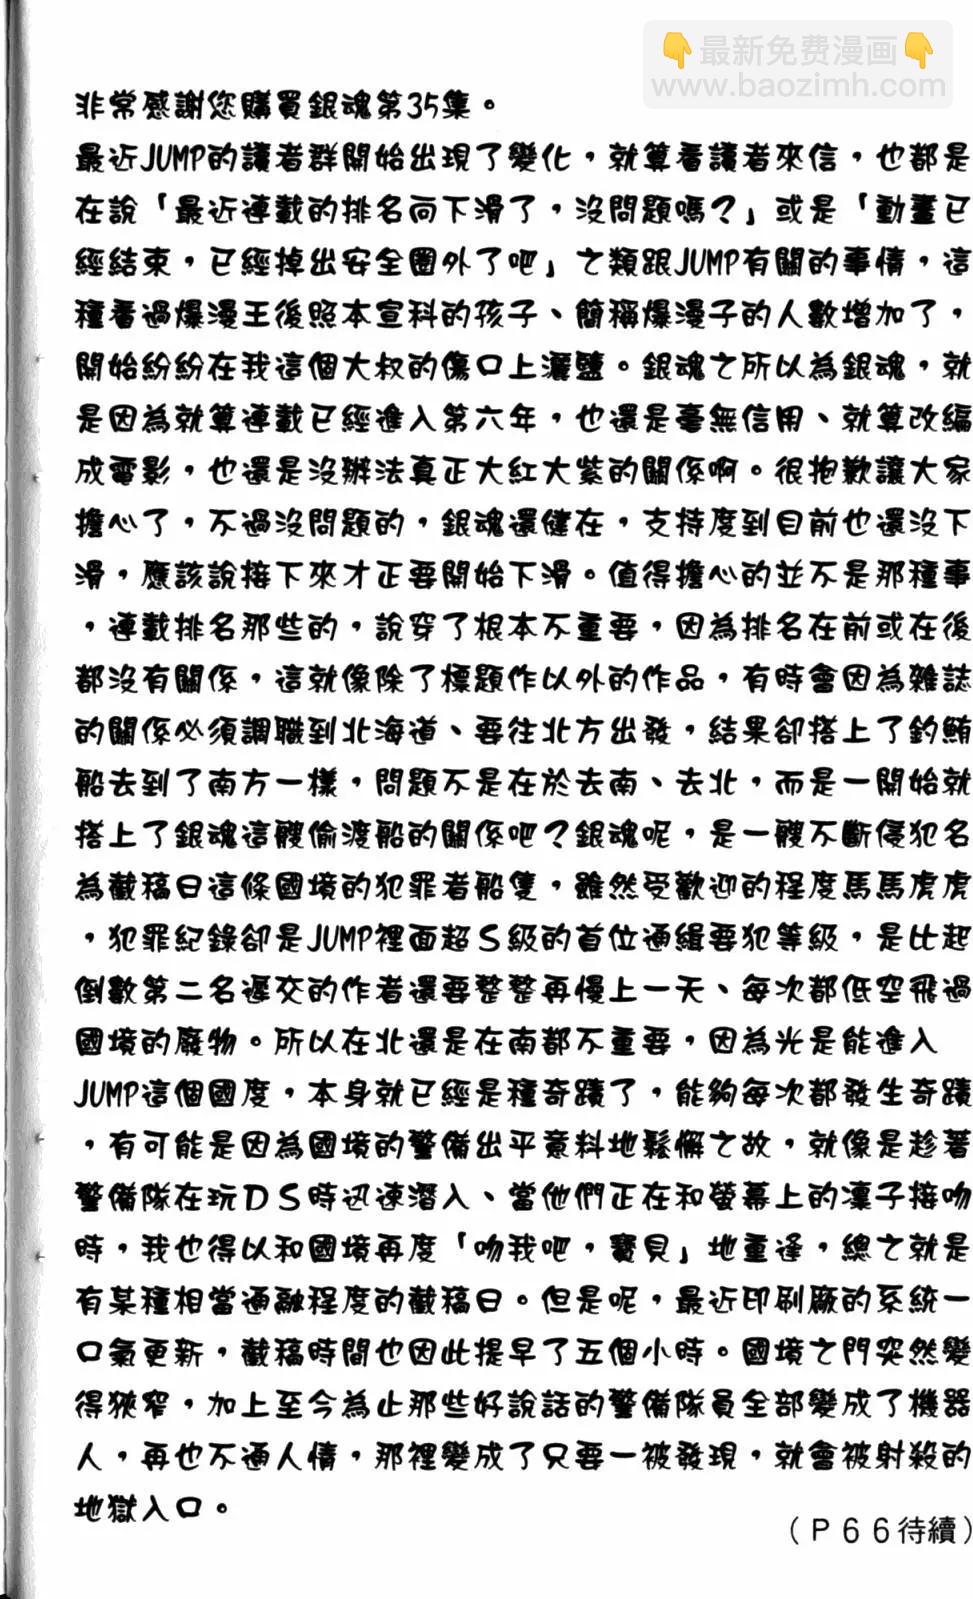 最新免费漫画
www.baozimh.com
非常感謝您購買銀魂第35集。
最近JUMP的讀者群開始出現了變化，就算看讀者來信，也都是
在說「最近連載的排名向下滑了，沒問題嗎？」或是「動畫已
經結束，已經掉出安全圈外了吧」之類跟JUMP有關的事情，這
種看過爆漫王後照本宣科的孩子、簡稱爆漫子的人數增加了，
開始紛紛在我這個大叔的傷口上灑鹽。銀魂之所以為銀魂，就
是因為就算連載已經進入第六年，也還是毫無信用、就算改編
成電影，也還是沒辦法真正大紅大紫的關係啊。很抱歉讓大家
擔心了，不過沒問題的，銀魂還健在，支持度到目前也還沒下
滑，應該說接下來才正要開始下滑。值得擔心的並不是那種事
，連載排名那些的，說穿了根本不重要，因為排名在前或在後
都沒有關係，這就像除了標題作以外的作品，有時會因為雜誌
的關係必須調職到北海道、要往北方出發，結果卻搭上了釣鮪
船去到了南方一樣，問題不是在於去南、去北，而是一開始就
搭上了銀魂這艘偷渡船的關係吧？銀魂呢，是一艘不斷侵犯名
為截稿日這條國境的犯罪者船隻，雖然受歡迎的程度馬馬虎虎
，犯罪紀錄卻是JUMP裡面超Ｓ級的首位通緝要犯等級，是比起
倒數第二名遲交的作者還要整整再慢上一天、每次都低空飛過
國境的廢物。所以在北還是在南都不重要，因為光是能進入
JUMP這個國度，本身就已經是種奇蹟了，能夠每次都發生奇蹟
，有可能是因為國境的警備出乎意料地鬆懈之故，就像是趁著
警備隊在玩ＤＳ時迅速潛入、當他們正在和螢幕上的凜子接吻
時，我也得以和國境再度「吻我吧，寶貝」地重逢，總之就是
有某種相當通融程度的截稿日。但是呢，最近印刷廠的系統一
口氣更新，截稿時間也因此提早了五個小時。國境之門突然變
得狹窄，加上至今為止那些好說話的警備隊員全部變成了機器
人，再也不通人情，那裡變成了只要一被發現，就會被射殺的
地獄入口。
（Ｐ６６待續）